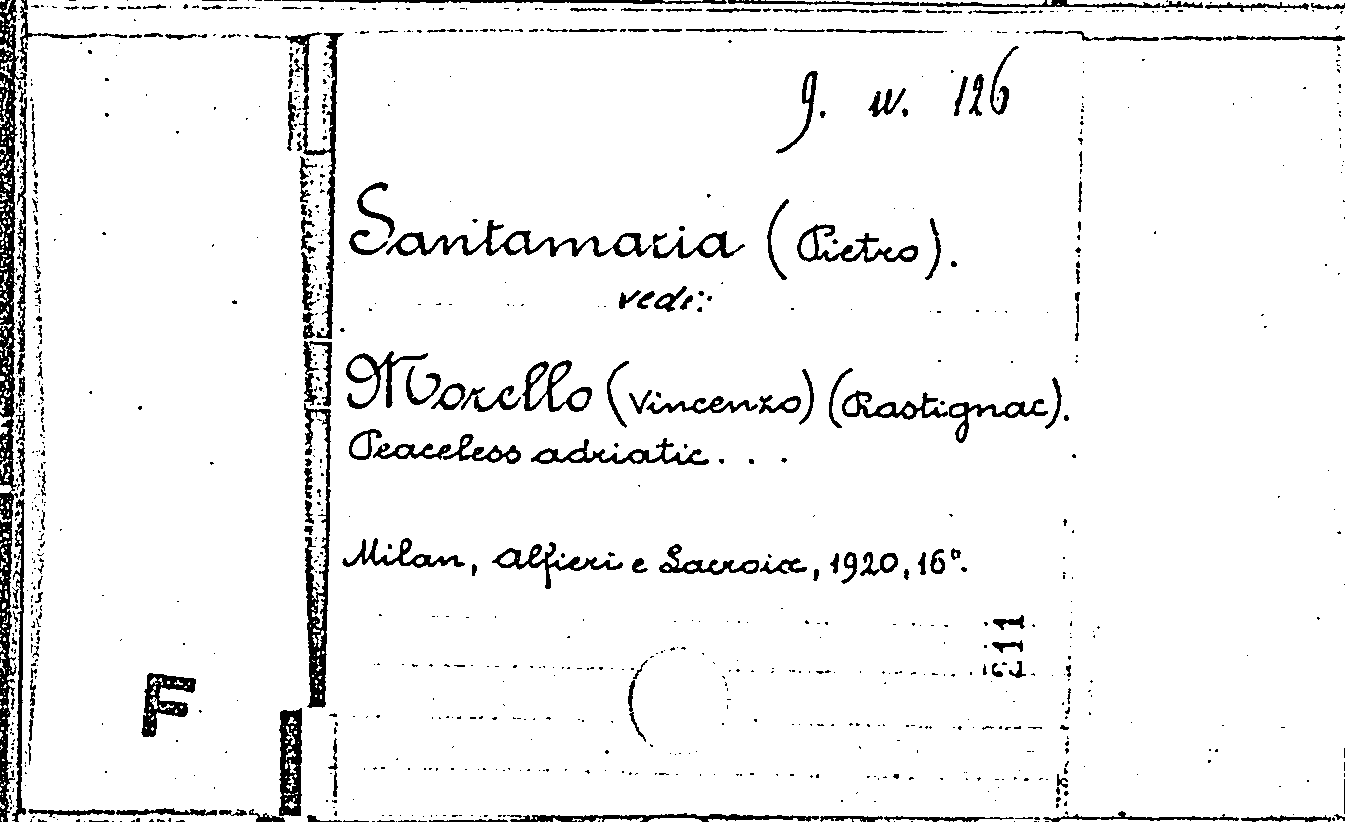 g. w. 126
Santamaria (Pietro).
vedi:
Morello (Vincenzo) (Rastignac).
Peaceless adriatic . . .
Milan, Alfieri e Lacroix, 1920, 16°.
F